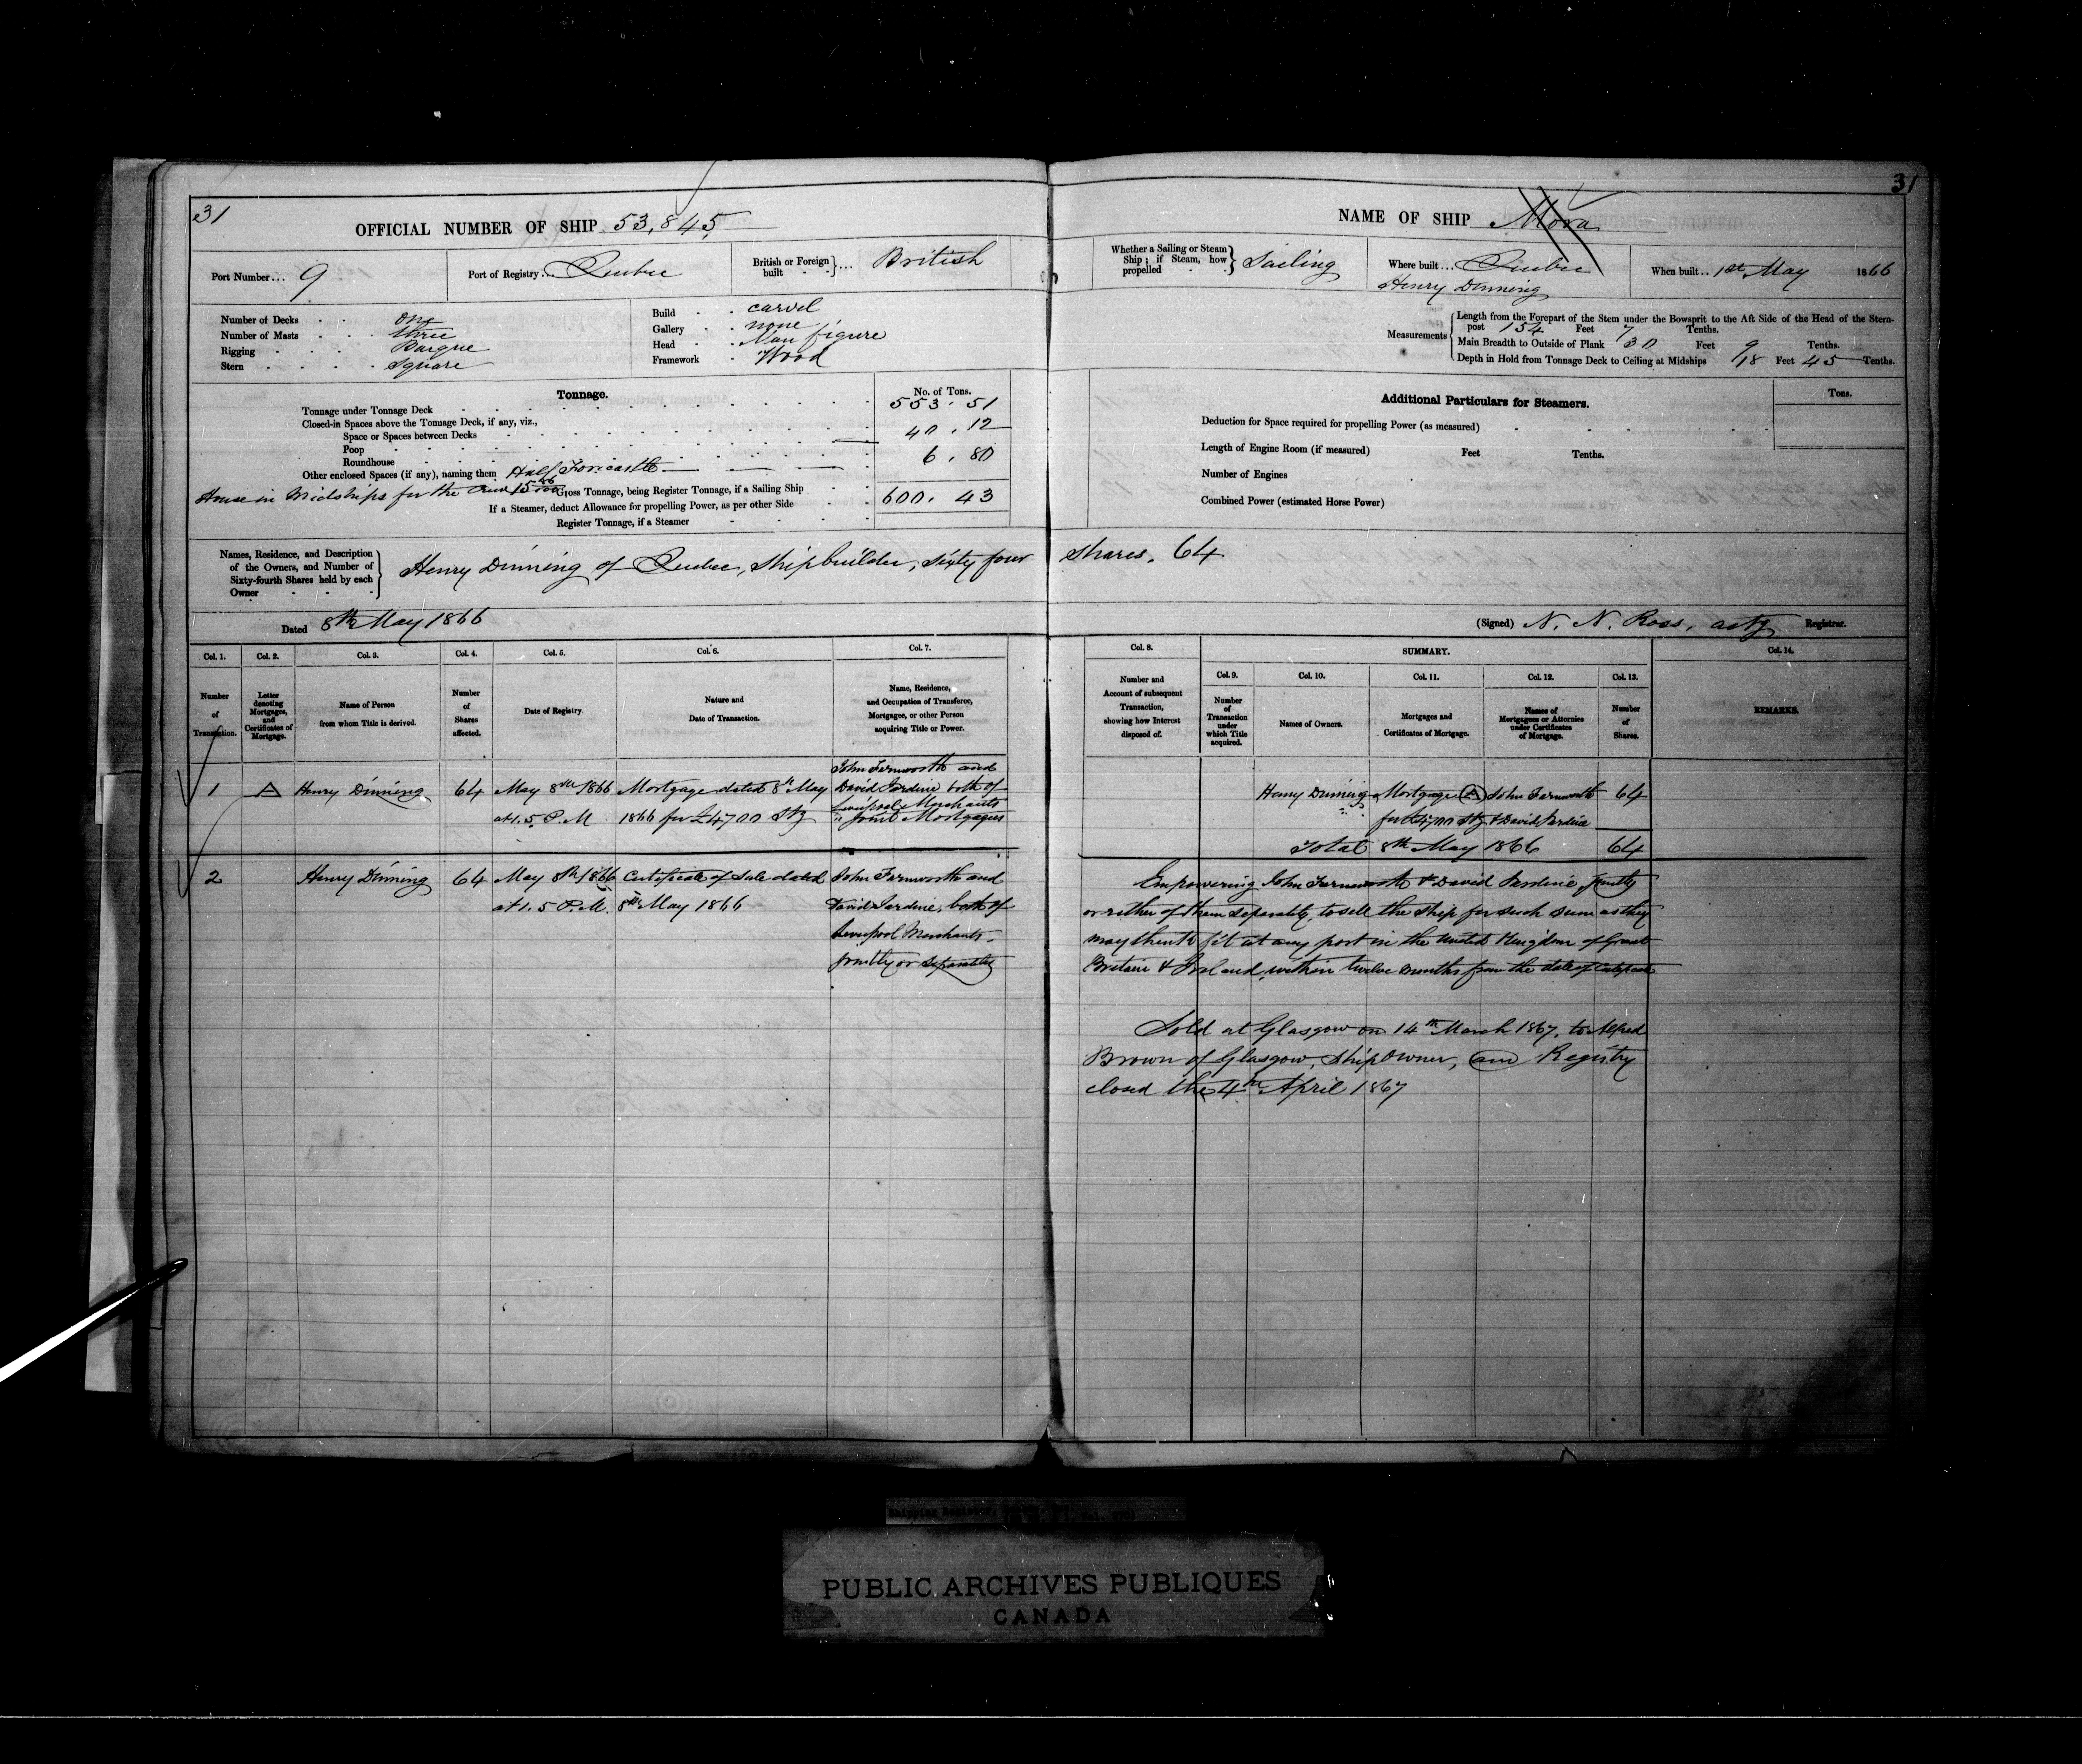 31
OFFICIAL NUMBER OF SHIP 53,845
Port Number... 9
Port of Registry... Quebec
British or Foreign built }... British
Number of Decks . . . one
Number of Masts . . . three
Rigging . . . . Barque
Stern . . . . . Square
Build . . carvel
Gallery . . none
Head . . Man figure
Framework . Wood
Tonnage.
No. of Tons.
Tonnage under Tonnage Deck 553.51
Closed-in Spaces above the Tonnage Deck, if any, viz.,
Space or Spaces between Decks 40.12
Poop
Roundhouse 6.80
Other enclosed Spaces (if any), naming them Half Forecastle
House in Midships for the Crew 15
Gross Tonnage, being Register Tonnage, if a Sailing Ship 600.43
If a Steamer, deduct Allowance for propelling Power, as per other Side
Register Tonnage, if a Steamer
Names, Residence, and Description of the Owners, and Number of Sixty-fourth Shares held by each Owner } Henry Dinning of Quebec, Shipbuilder, Sixty four
Dated 8th May 1866
Col. 1. Col. 2. Col. 3. Col. 4. Col. 5. Col. 6. Col. 7.
Number of Transaction.
Letter denoting Mortgages, and Certificates of Mortgage.
Name of Person from whom Title is derived.
Number of Shares affected.
Date of Registry.
Nature and Date of Transaction.
Name, Residence, and Occupation of Transferee, Mortgagee, or other Person acquiring Title or Power.
John Farnworth and
1 A Henry Dinning 64 May 8th 1866 Mortgage dated 8th May David Jardine both of
Liverpool Merchants
at 1.5 P.M 1866 for £4700 Stg " Joint Mortgagees
2 Henry Dinning 64 May 8th 1866 Certificate of Sale dated John Farnworth and
at 1.5 P.M. 8th May 1866 David Jardine, both of
Liverpool Merchants.
jointly or separately
31
NAME OF SHIP Mora
Whether a Sailing or Steam Ship; if Steam, how propelled } Sailing
Where built... Quebec
Henry Dinning
When built.. 1st May 1866
Measurements
Length from the Forepart of the Stem under the Bowsprit to the Aft Side of the Head of the Stern-
post 154 Feet 7 Tenths.
Main Breadth to Outside of Plank 30 Feet 9 Tenths.
Depth in Hold from Tonnage Deck to Ceiling at Midships 18 Feet 45 Tenths.
Additional Particulars for Steamers.
Tons.
Deduction for Space required for propelling Power (as measured)
Length of Engine Room (if measured) Feet Tenths.
Number of Engines
Combined Power (estimated Horse Power)
Shares. 64
(Signed) N. N. Ross, actg Registrar.
Col. 8. SUMMARY. Col. 14.
Col. 9. Col. 10. Col. 11. Col. 12. Col. 13.
Number and Account of subsequent Transaction, showing how Interest disposed of.
Number of Transaction under which Title acquired.
Names of Owners.
Mortgages and Certificates of Mortgage.
Names of Mortgagees or Attornies under Certificates of Mortgage.
Number of Shares.
REMARKS.
Henry Dinning Mortgage A John Farnworth 64
for £4700 Stg & David Jardine
Total 8th May 1866 64
Empowering John Farnworth & David Jardine, jointly
or either of them separately, to sell the ship for such sum as they
may think fit at any port in the United Kingdom of Great
Britain & Ireland within twelve months from the date of Certificate
Sold at Glasgow on 14th March 1867, to Alfred
Brown of Glasgow, Ship Owner, and Registry
closed the 4th April 1867
PUBLIC ARCHIVES PUBLIQUES
CANADA